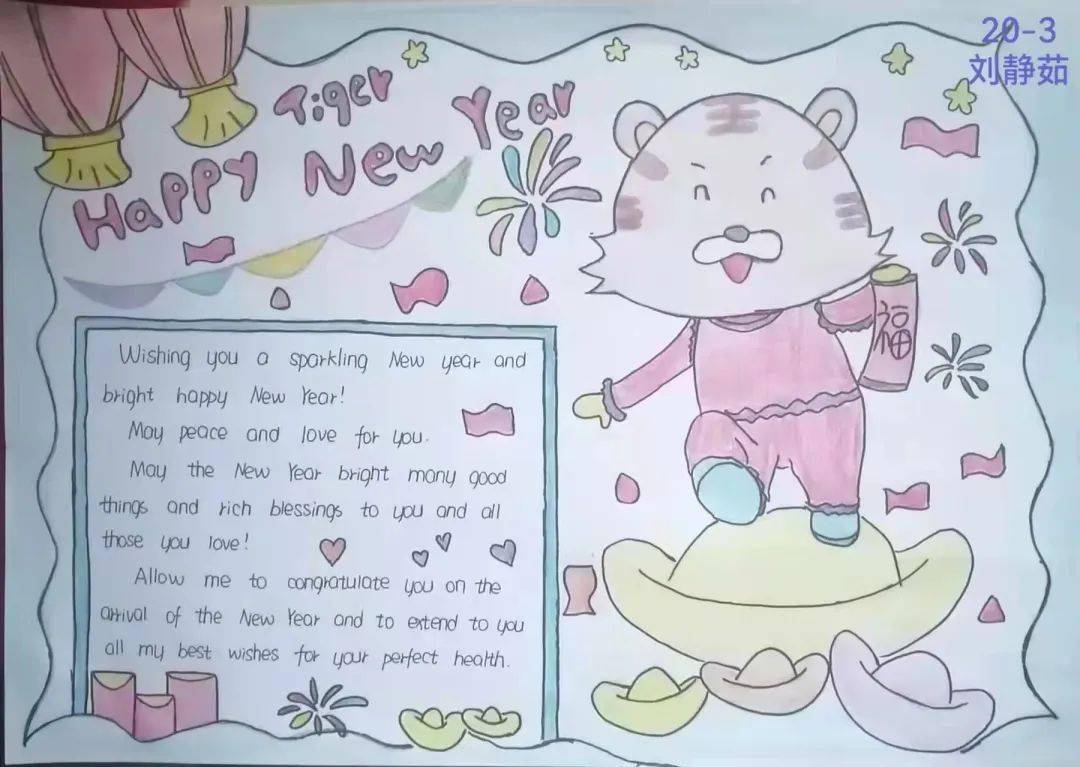 20-3
刘静茹
Tiger
Happy New Year
福
Wishing you a sparkling New year and
bright happy New Year!
May peace and love for you.
May the New Year bright many good
things and rich blessings to you and all
those you love!
Allow me to congratulate you on the
arrival of the New Year and to extend to you
all my best wishes for your perfect health.